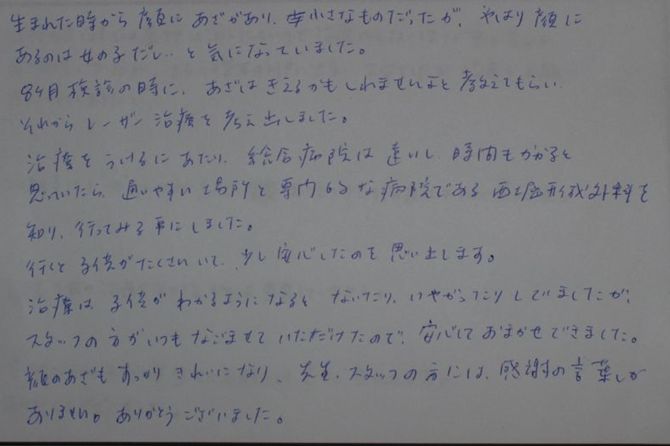 生まれた時から顔にあざがあり、小さなものだったが、やはり顔に
あるのは女の子だし…と気になっていました。
8ヶ月検診の時に、あざはきえるかもしれませんよと教えてもらい
それからレーザー治療を考え出しました。
治療をうけるにあたり、総合病院は遠いし、時間もかかると
思っていたら、通いやすい場所と専門的な病院である西堀形成外科を
知り、行ってみる事にしました。
行くと子供がたくさんいて、少し安心したのを思い出します。
治療は子供がわかるようになるとないたり、いやがったりしてましたが、
スタッフの方がいつもなごませていただけたので、安心しておまかせできました。
顔のあざもすっかりきれいになり、先生、スタッフの方には、感謝の言葉しか
ありません。ありがとうございました。